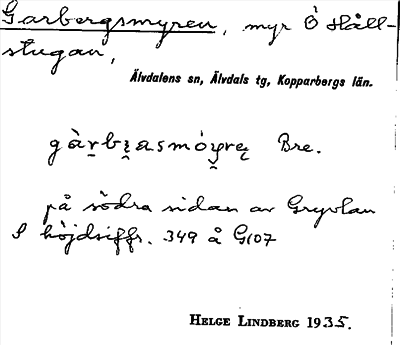 Garbergsmyren, myr Ö Håll-
stugan,
Älvdalens sn, Älvdals tg, Kopparbergs län.
Bre.
på södra sidan av Gryvlan
S höjdsiffr. 349 å G107
HELGE LINDBERG 1935.